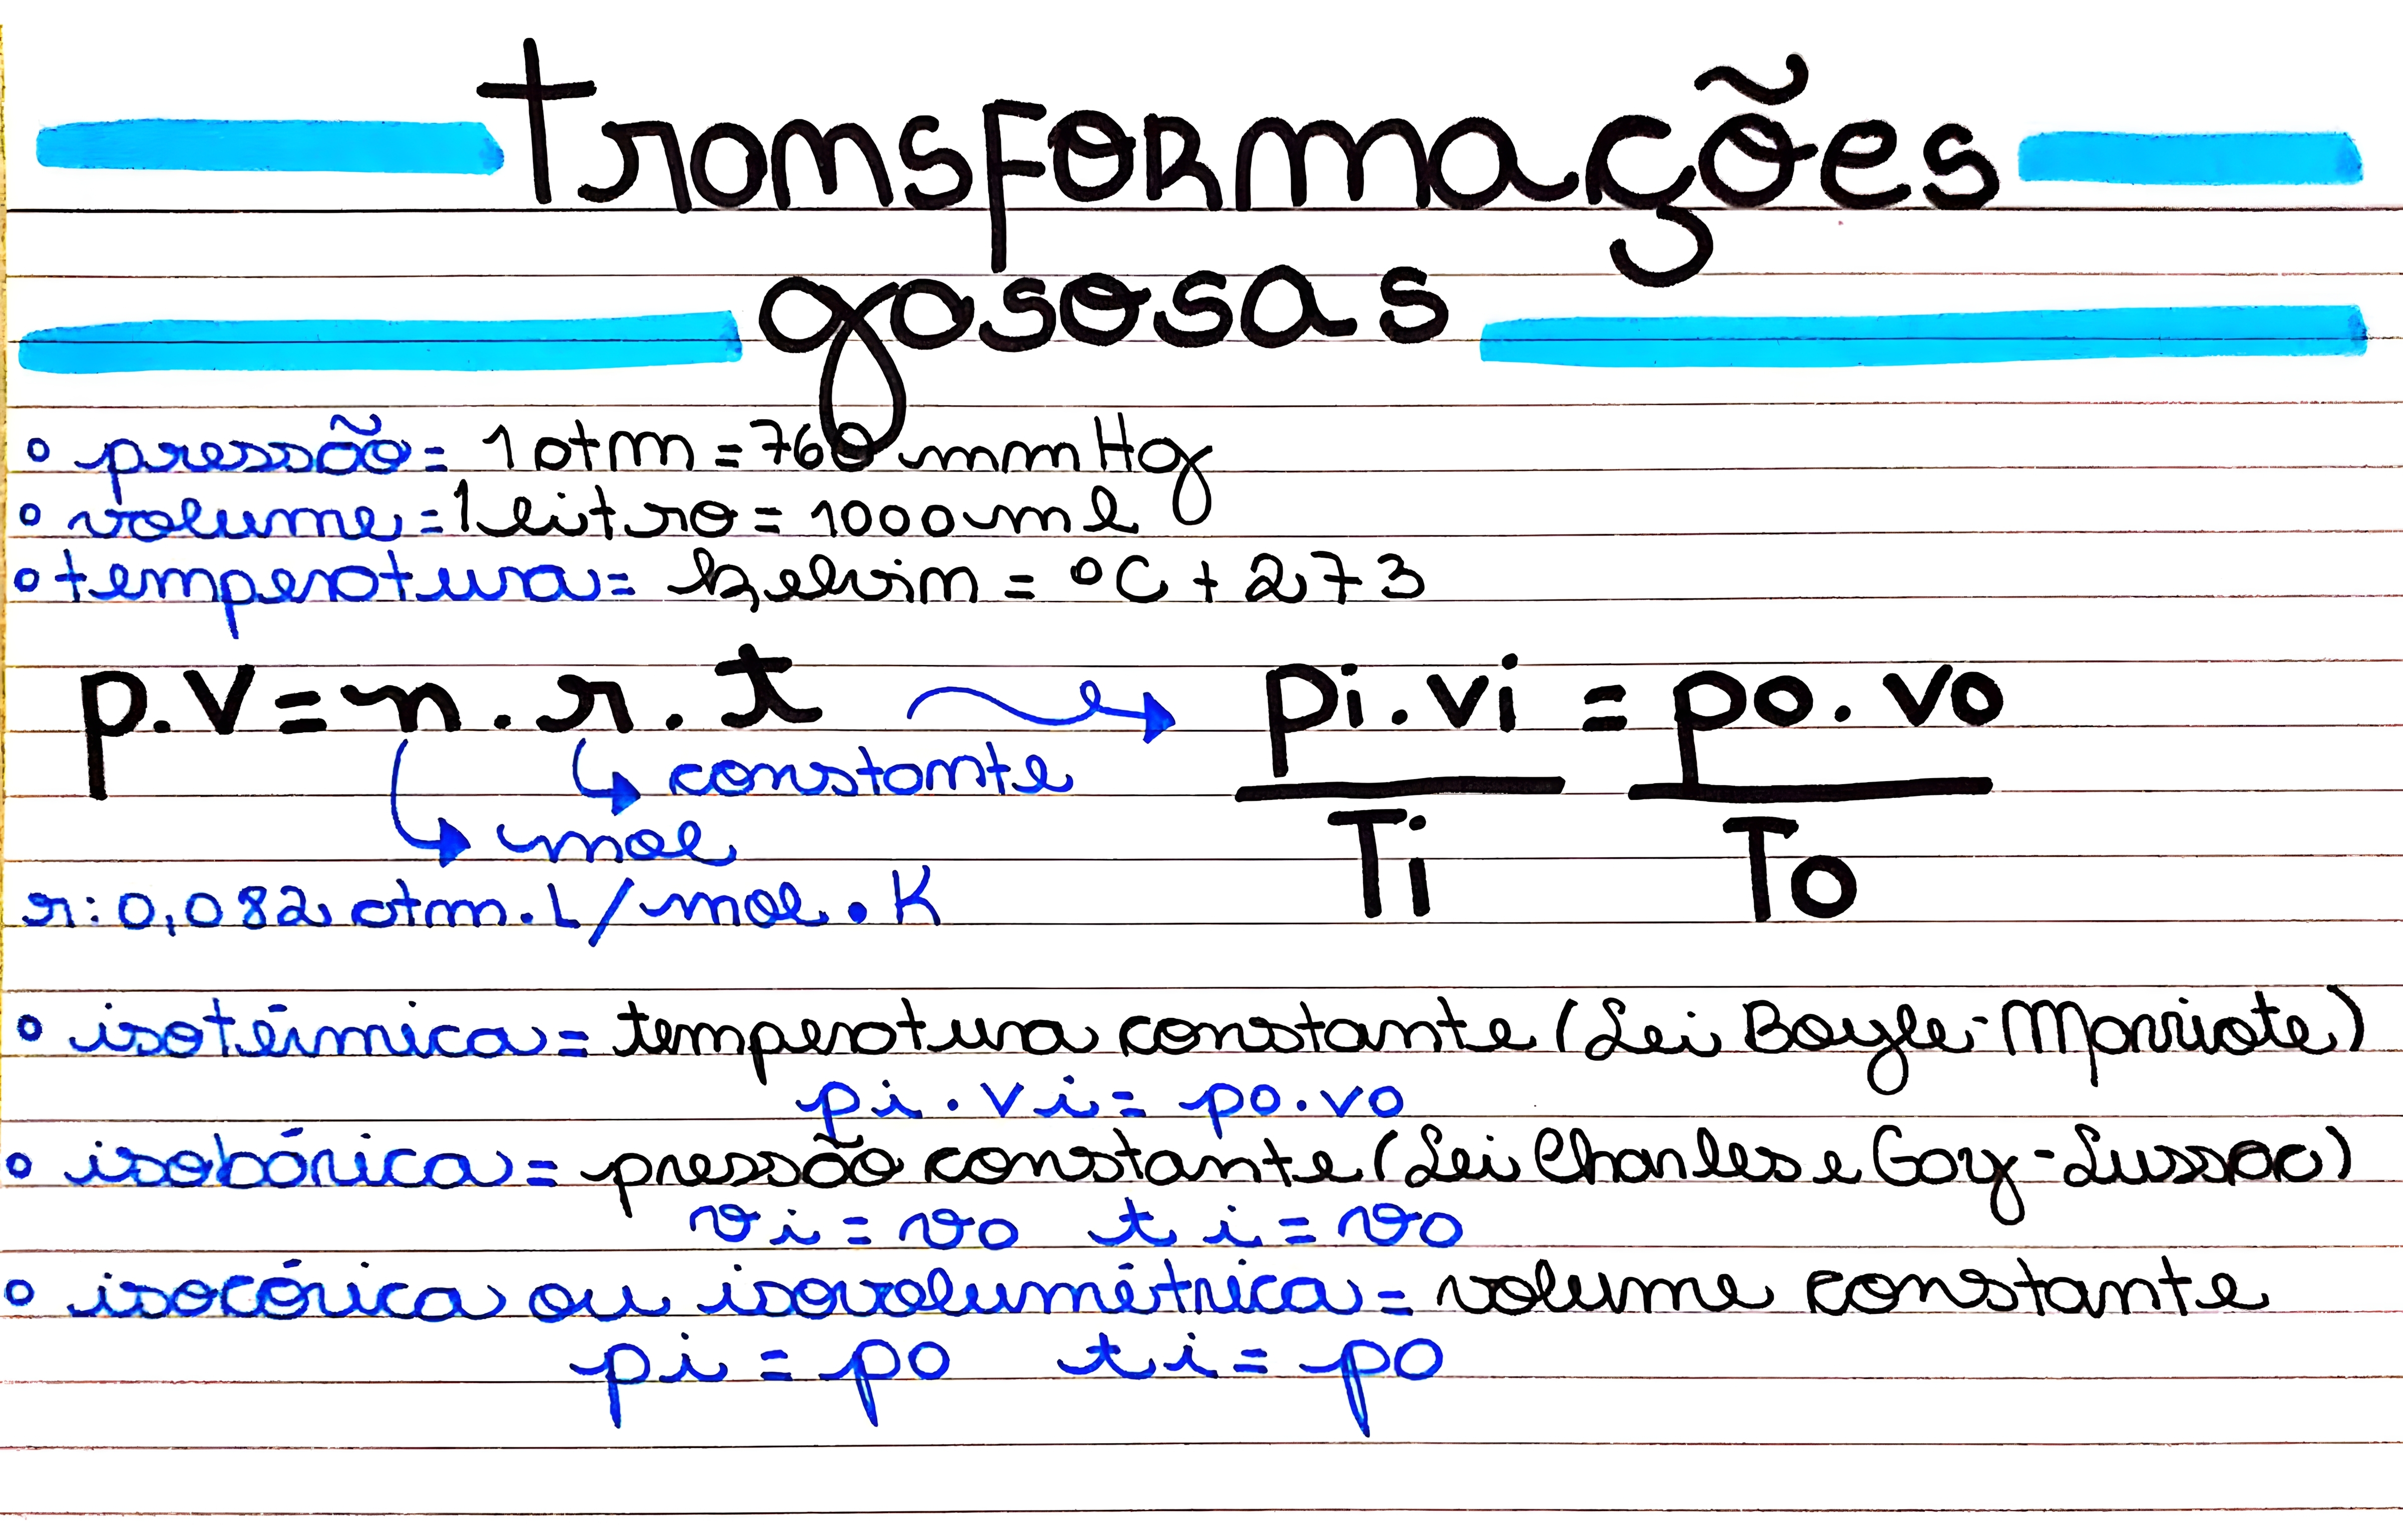 transformações
gasosas
pressão = 1 atm = 760 mmHg
volume = 1 litro = 1000 ml
temperatura = kelvin = °C + 273
p.v = n . r . t pi . vi = po . vo
constante
mol
Ti To
r: 0,082 atm . L / mol . K
isotérmica = temperatura constante (Lei Boyle-Marriote)
pi . vi = po . vo
isobárica = pressão constante (Lei Charles e Gay-Lussac)
vi = vo ti = vo
isocórica ou isovolumétrica = volume constante
pi = po ti = po